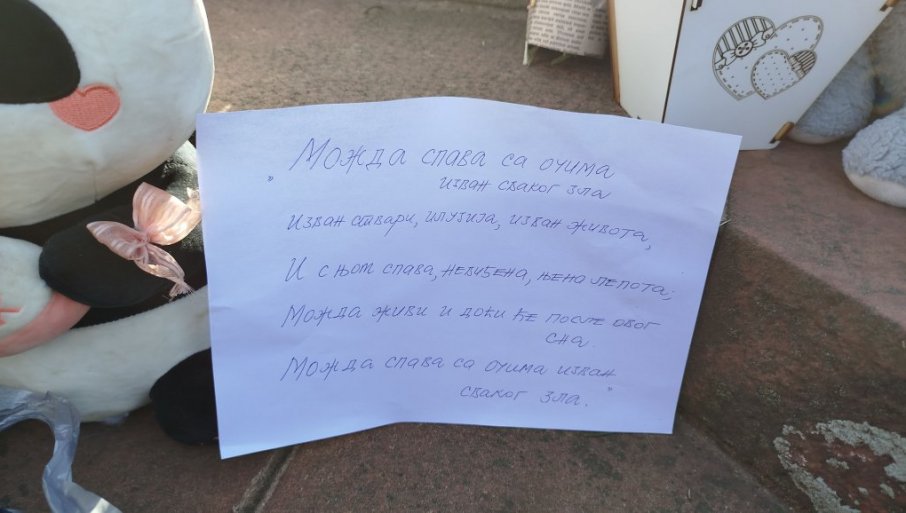 "Можда спава са очима
изван сваког зла
Изван ствари, илузија, изван живота,
И с њом спава, невиђена, њена лепота;
Можда живи и доћи ће после овог
сна.
Можда спава са очима изван
сваког зла."